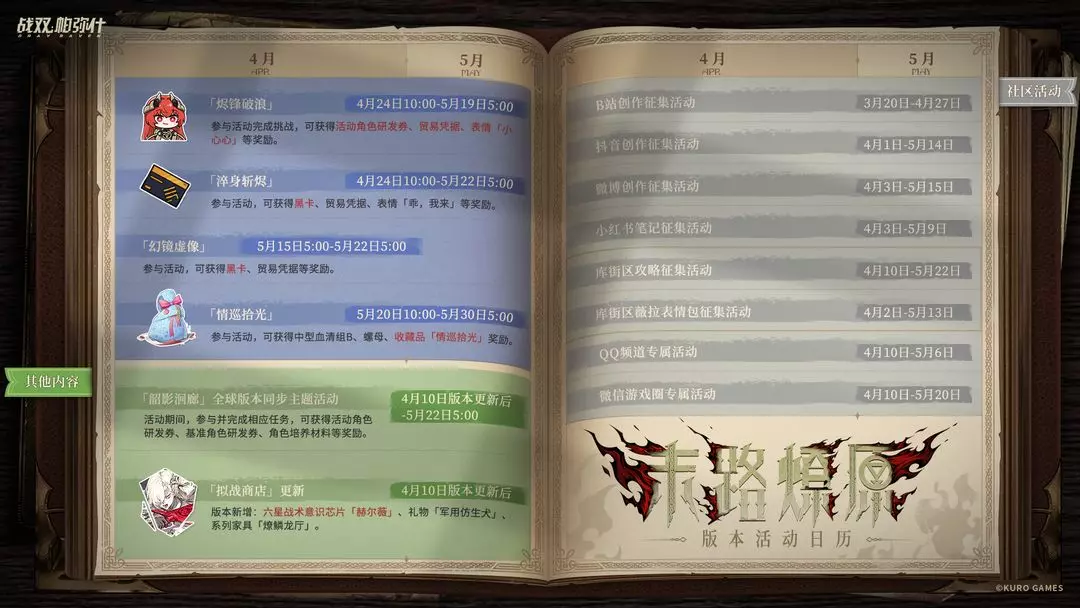 战双帕弥什
GRAY RAVEN
4月
APR
5月
MAY
「烬锋破浪」 4月24日10:00-5月19日5:00
参与活动完成挑战，可获得活动角色研发券、贸易凭据、表情「小
心心」等奖励。
「淬身斩烬」 4月24日10:00-5月22日5:00
参与活动，可获得黑卡、贸易凭据、表情「乖，我来」等奖励。
「幻镜虚像」 5月15日5:00-5月22日5:00
参与活动，可获得黑卡、贸易凭据等奖励。
「情巡拾光」 5月20日10:00-5月30日5:00
参与活动，可获得中型血清组B、螺母、收藏品「情巡拾光」奖励。
其他内容
「韶影洄廊」全球版本同步主题活动 4月10日版本更新后
-5月22日5:00
活动期间，参与并完成相应任务，可获得活动角色
研发券、基准角色研发券、角色培养材料等奖励。
「拟战商店」更新 4月10日版本更新后
版本新增：六星战术意识芯片「赫尔薇」、礼物「军用仿生犬」、
系列家具「燎鳞龙厅」。
4月
APR
5月
MAY
社区活动
B站创作征集活动 3月20日-4月27日
抖音创作征集活动 4月1日-5月14日
微博创作征集活动 4月3日-5月15日
小红书笔记征集活动 4月3日-5月9日
库街区攻略征集活动 4月10日-5月22日
库街区薇拉表情包征集活动 4月2日-5月13日
QQ频道专属活动 4月10日-5月6日
微信游戏圈专属活动 4月10日-5月20日
末路燎原
版本活动日历
©KURO GAMES